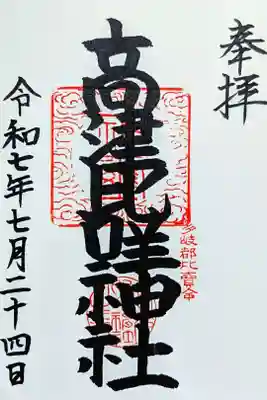 奉拝
高津比咩神社
多岐郡比賣命
令和七年七月二十四日